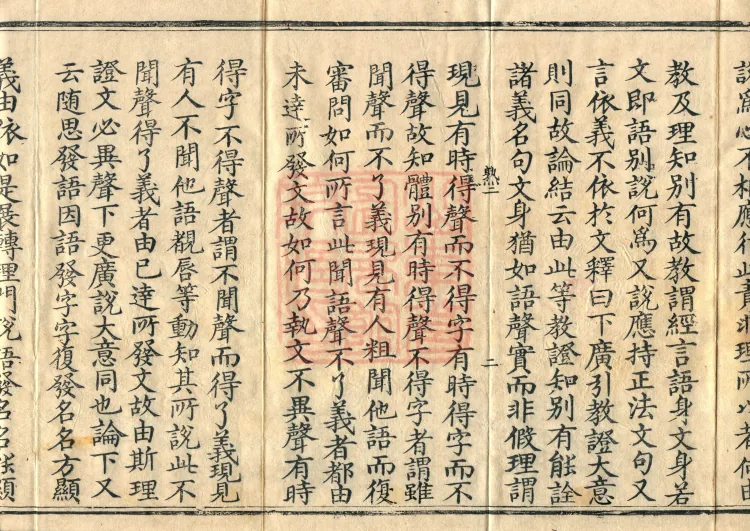 教及理知別有故教謂經言語身文身若
文即語別說何爲又說應持正法文句又
言依義不依於文釋曰下廣引教證大意
則同故論結云由此等教證知別有能詮
諸義名句文身猶如語聲實而非假理謂
現見有時得聲而不得字有時得字而不
得聲故知體別有時得聲不得字者謂雖
聞聲而不了義現見有人粗聞他語而復
審問如何所言此聞語聲不了義者都由
未達所發文故如何乃執文不異聲有時
得字不得聲者謂不聞聲而得了義現見
有人不聞他語覩唇等動知其所說此不
聞聲得了義者由已達所發文故由斯理
證文必異聲下更廣說大意同也論下又
云随思發語因語發字字復發名名方顯
義由依如是展轉理門說語發名名能顯